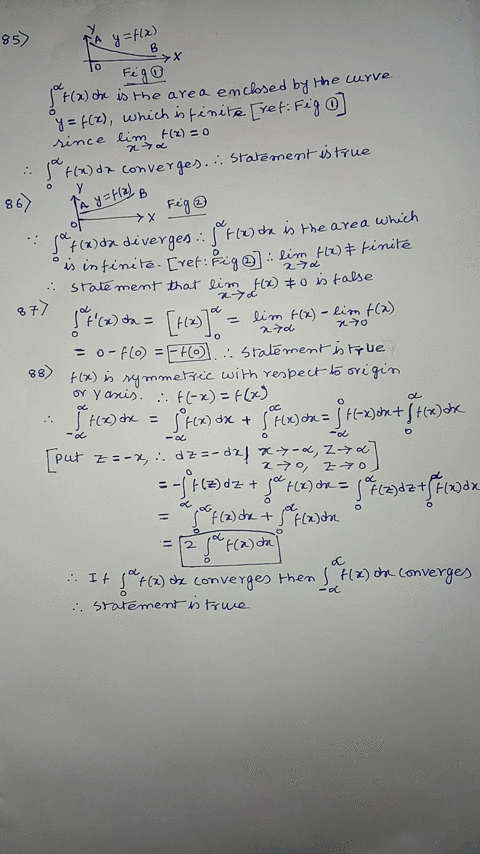 85) Y A y=f(x) B X O
Fig ①
∫₀^α f(x) dx is the area enclosed by the curve
y = f(x), which is finite [ref: Fig ①]
since lim x→α f(x) = 0
∴ ∫₀^α f(x) dx converges. ∴ Statement is true
86) Y A y=f(x) B X O Fig ②
∵ ∫₀^α f(x) dx diverges ∴ ∫₀^α f(x) dx is the area which
is infinite. [ref: Fig ②] ∴ lim x→α f(x) ≠ finite
∴ statement that lim x→α f(x) ≠ 0 is false
87) ∫₀^α f'(x) dx = [f(x)]₀^α = lim x→α f(x) - lim x→0 f(x)
= 0 - f(0) = -f(0). ∴ Statement is true
88) f(x) is symmetric with respect to origin
or y axis. ∴ f(-x) = f(x)
∴ ∫₋α^α f(x) dx = ∫₋α^0 f(x) dx + ∫₀^α f(x) dx = ∫₋α^0 f(-x) dx + ∫₀^α f(x) dx
[Put z = -x, ∴ dz = -dx | x→-α, z→α
x→0, z→0]
= -∫α^0 f(z) dz + ∫₀^α f(x) dx = ∫₀^α f(z) dz + ∫₀^α f(x) dx
= ∫₀^α f(x) dx + ∫₀^α f(x) dx
= 2 ∫₀^α f(x) dx
∴ If ∫₀^α f(x) dx converges then ∫₋α^α f(x) dx converges
∴ statement is true